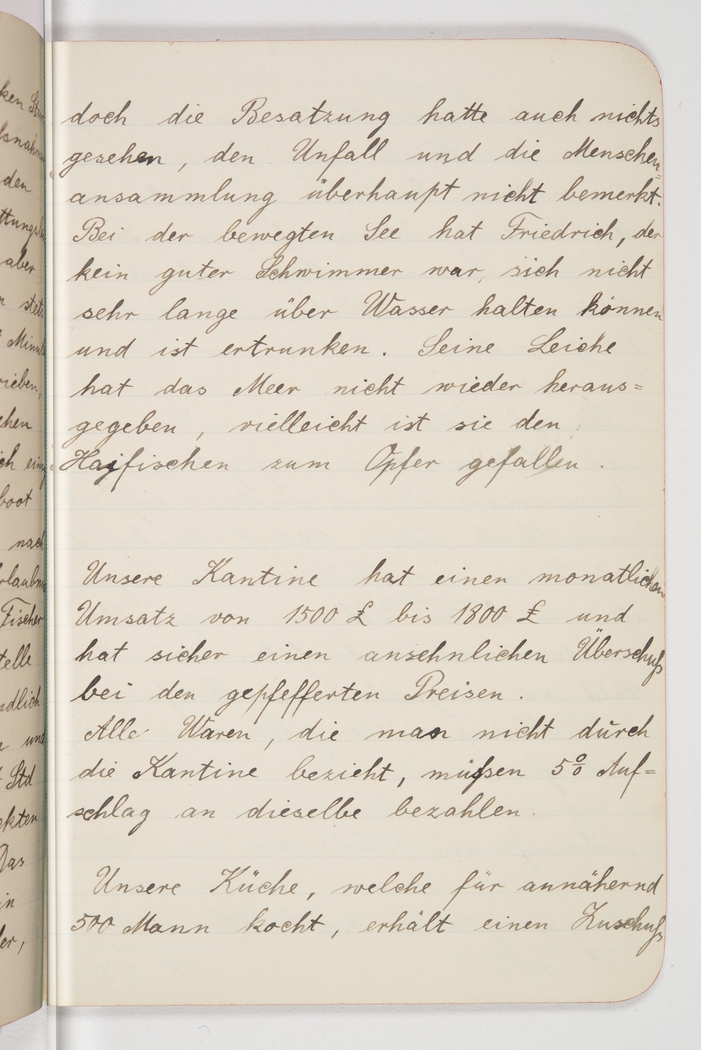 doch die Besatzung hatte auch nichts
gesehen, den Unfall und die Menschen=
ansammlung überhaupt nicht bemerkt.
Bei der bewegten See hat Friedrich, der
kein guter Schwimmer war, sich nicht
sehr lange über Wasser halten können
und ist ertrunken. Seine Leiche
hat das Meer nicht wieder heraus=
gegeben, vielleicht ist sie den
Haifischen zum Opfer gefallen.
Unsere Kantine hat einen monatlichen
Umsatz von 1500 £ bis 1800 £ und
hat sicher einen ansehnlichen Überschuß
bei den gepfefferten Preisen.
Alle Waren, die man nicht durch
die Kantine bezieht, müßen 5% Auf=
schlag an dieselbe bezahlen.
Unsere Küche, welche für annähernd
500 Mann kocht, erhält einen Zuschuß